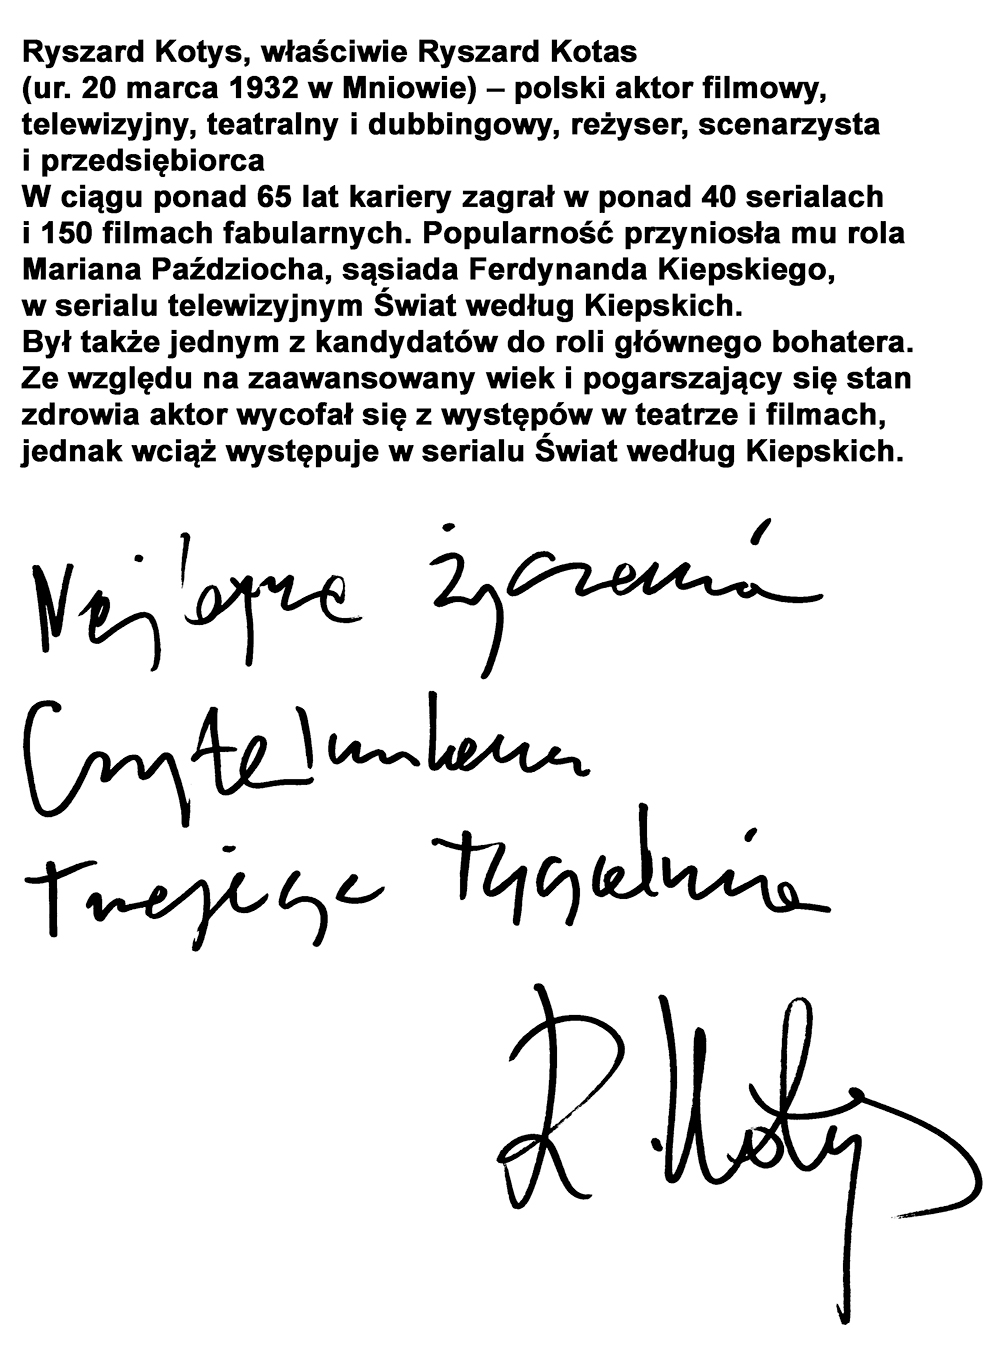 Ryszard Kotys, właściwie Ryszard Kotas
(ur. 20 marca 1932 w Mniowie) – polski aktor filmowy,
telewizyjny, teatralny i dubbingowy, reżyser, scenarzysta
i przedsiębiorca
W ciągu ponad 65 lat kariery zagrał w ponad 40 serialach
i 150 filmach fabularnych. Popularność przyniosła mu rola
Mariana Paździocha, sąsiada Ferdynanda Kiepskiego,
w serialu telewizyjnym Świat według Kiepskich.
Był także jednym z kandydatów do roli głównego bohatera.
Ze względu na zaawansowany wiek i pogarszający się stan
zdrowia aktor wycofał się z występów w teatrze i filmach,
jednak wciąż występuje w serialu Świat według Kiepskich.
Najlepsze życzenia
Czytelnikom
Twojego Tygodnia
R. Kotys